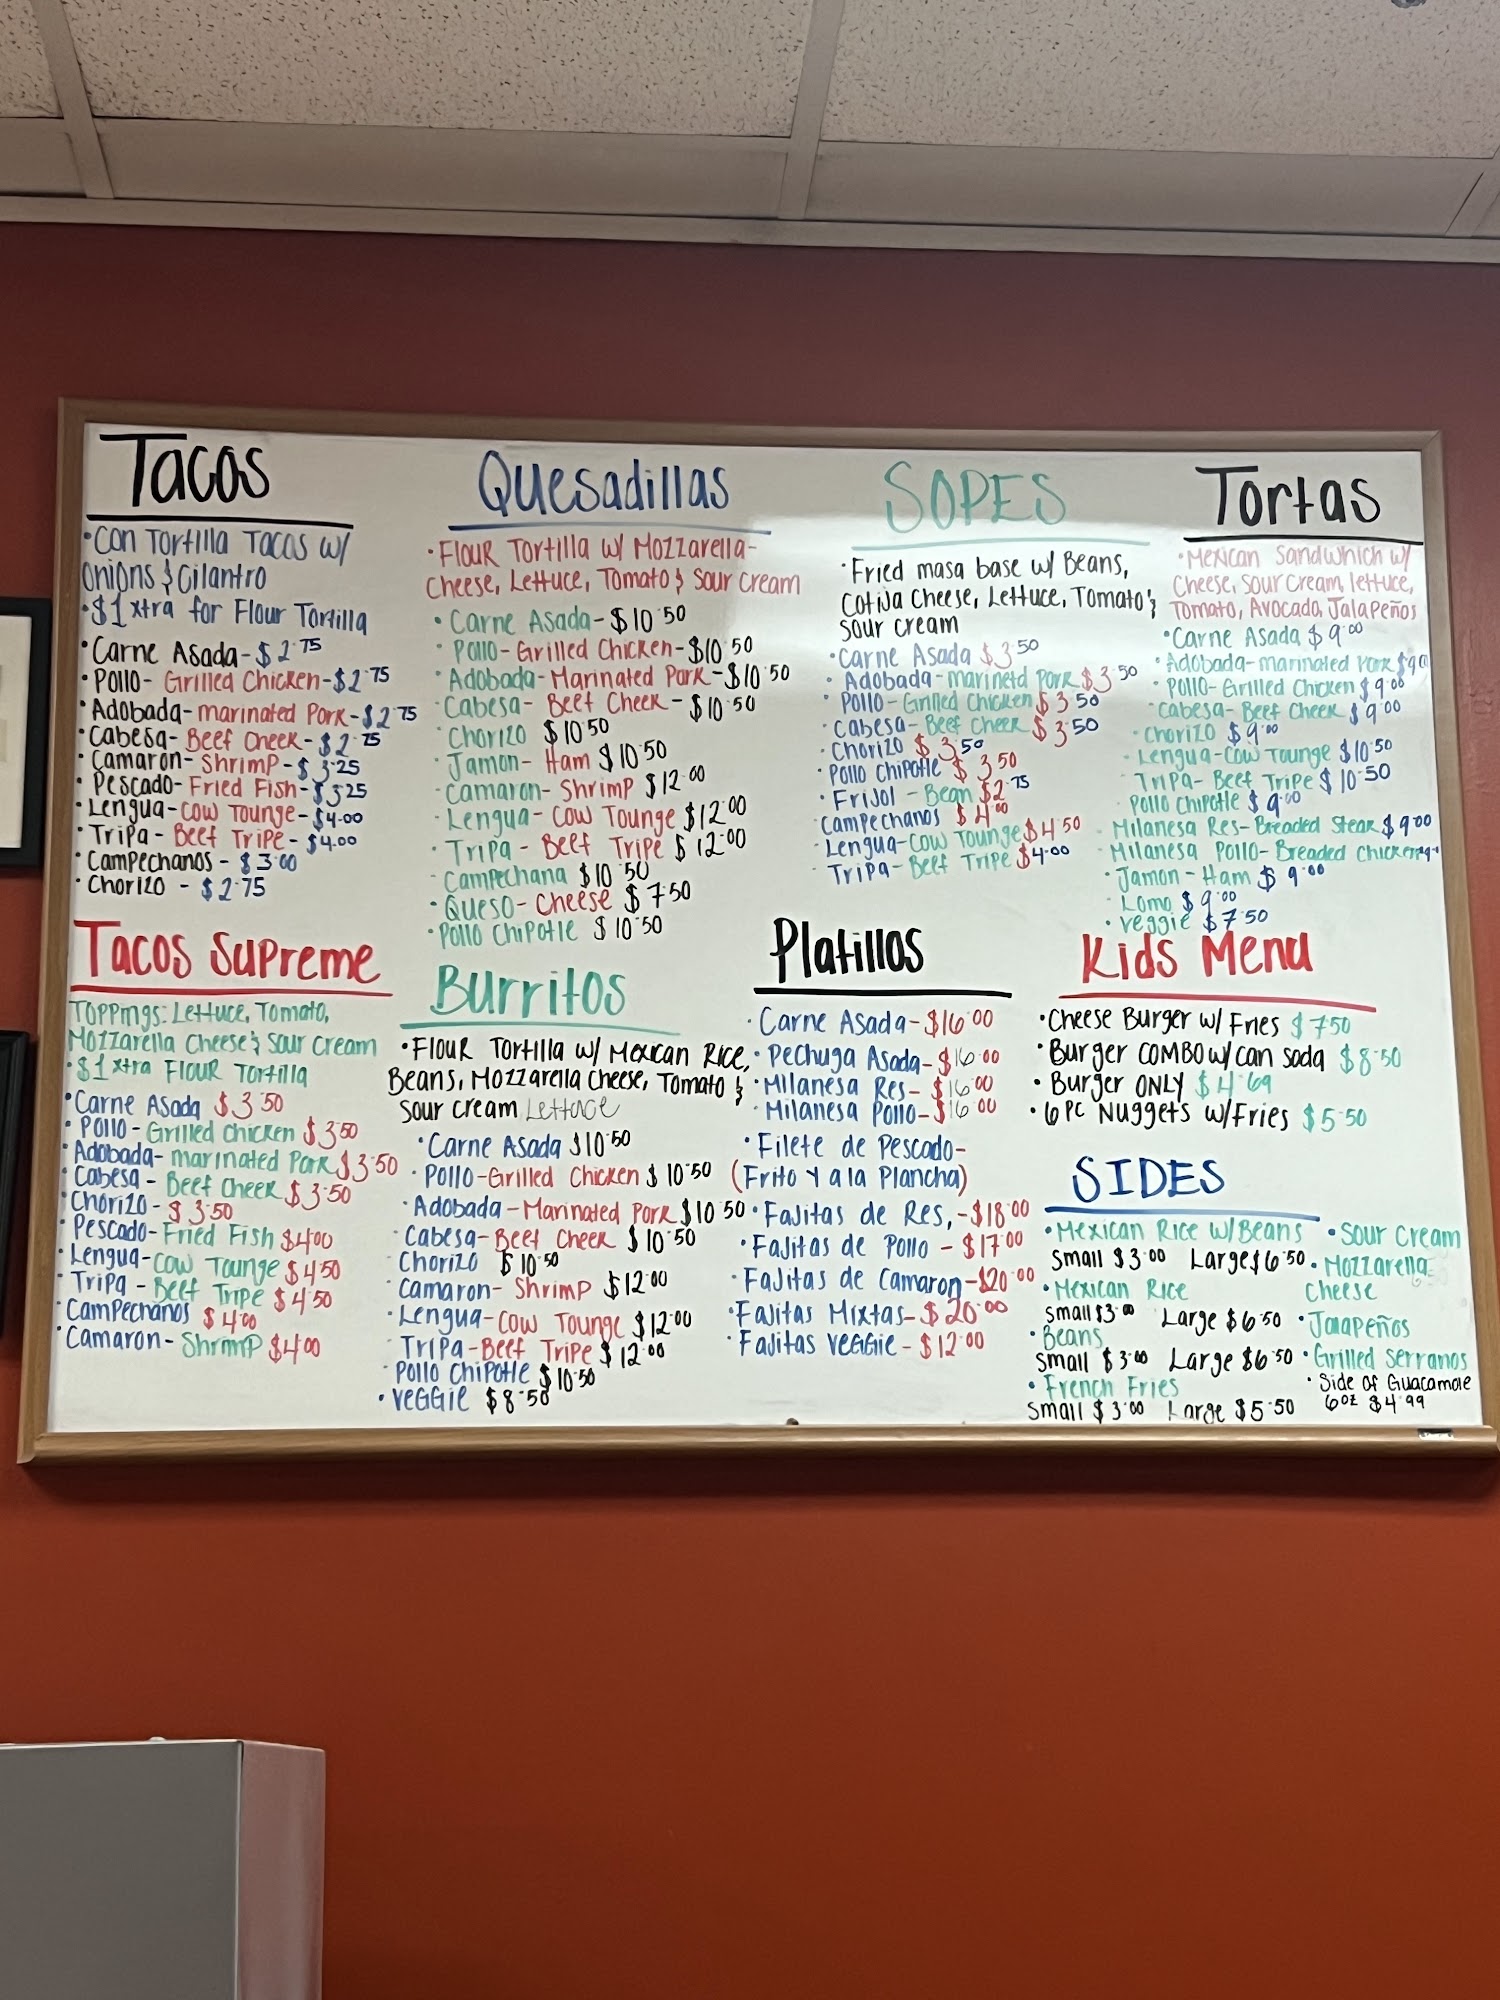 Tacos
•Con Tortilla Tacos w/
Onions & Cilantro
•$1 xtra for Flour Tortilla
•Carne Asada-$2.75
•Pollo-Grilled Chicken-$2.75
Adobada-marinated Pork-$2.75
•Cabesa-Beef Cheek-$2.75
•Camaron-Shrimp-$3.25
•Pescado-Fried Fish-$3.25
•Lengua-Cow Tounge-$4.00
•Tripa-Beef Tripe-$4.00
•Campechanos-$3.00
•Chorizo-$2.75
Tacos Supreme
Toppings: Lettuce, Tomato,
Mozzarella Cheese & Sour Cream
•$1 xtra Flour Tortilla
•Carne Asada $3.50
•Pollo-Grilled Chicken $3.50
Adobada-marinated Pork $3.50
•Cabesa-Beef Cheek $3.50
•Chorizo-$3.50
•Pescado-Fried Fish $4.00
•Lengua-Cow Tounge $4.50
•Tripa-Beef Tripe $4.50
•Campechanos $4.00
•Camaron-Shrimp $4.00
Quesadillas
•Flour Tortilla w/ Mozzarella-
Cheese, Lettuce, Tomato & Sour Cream
•Carne Asada-$10.50
•Pollo-Grilled Chicken-$10.50
•Adobada-Marinated Pork-$10.50
•Cabesa-Beef Cheek-$10.50
•Chorizo $10.50
•Jamon-Ham $10.50
•Camaron-Shrimp $12.00
•Lengua-Cow Tounge $12.00
•Tripa-Beef Tripe $12.00
•Campechana $10.50
•Queso-Cheese $7.50
•Pollo Chipotle $10.50
Burritos
•Flour Tortilla w/ Mexican Rice,
Beans, Mozzarella cheese, Tomato &
Sour cream Lettuce
•Carne Asada $10.50
•Pollo-Grilled Chicken $10.50
•Adobada-Marinated Pork $10.50
•Cabesa-Beef Cheek $10.50
•Chorizo $10.50
•Camaron-Shrimp $12.00
•Lengua-Cow Tounge $12.00
•Tripa-Beef Tripe $12.00
•Pollo Chipotle $10.50
•Veggie $8.50
SOPES
•Fried masa base w/ Beans,
Cotija Cheese, Lettuce, Tomato &
sour cream
•Carne Asada $3.50
•Adobada-marineted Pork $3.50
•Pollo-Grilled Chicken $3.50
•Cabesa-Beef Cheek $3.50
•Chorizo $3.50
•Pollo Chipotle $3.50
•Frijol-Bean $2.75
Campechanos $4.00
•Lengua-Cow Tounge $4.50
•Tripa-Beef Tripe $4.00
Platillos
•Carne Asada-$16.00
•Pechuga Asada-$16.00
•Milanesa Res-$16.00
•Milanesa Pollo-$16.00
•Filete de Pescado-
(Frito y a la Plancha)
•Fajitas de Res,-$18.00
•Fajitas de Pollo-$17.00
•Fajitas de Camaron-$20.00
•Fajitas Mixtas-$20.00
•Fajitas Veggie-$12.00
Tortas
•Mexican Sandwhich w/
Cheese, Sour Cream, lettuce,
Tomato, Avocado, Jalapeños
•Carne Asada $9.00
•Adobada-marinated Pork
•Pollo-Grilled Chicken $9.00
•Cabesa-Beef Cheek $9.00
•Chorizo $9.00
•Lengua-Cow Tounge $10.50
•Tripa-Beef Tripe $10.50
Pollo Chipotle $9.00
•Milanesa Res-Breaded Steak $9.00
•Milanesa Pollo-Breaded Chicken
•Jamon-Ham $9.00
•Lomo $9.00
•Veggie $7.50
Kids Menu
•Cheese Burger w/ Fries $7.50
•Burger COMBO w/can soda $8.50
•Burger ONLY $4.69
•6 PC Nuggets w/Fries $5.50
SIDES
•Mexican Rice w/Beans
Small $3.00 Large $6.50
•Mexican Rice
Small $3.00 Large $6.50
•Beans
Small $3.00 Large $6.50
•French Fries
Small $3.00 Large $5.50
•Sour Cream
•Mozzarella
Cheese
•Jalapeños
•Grilled Serranos
•Side of Guacamole
6oz $4.99